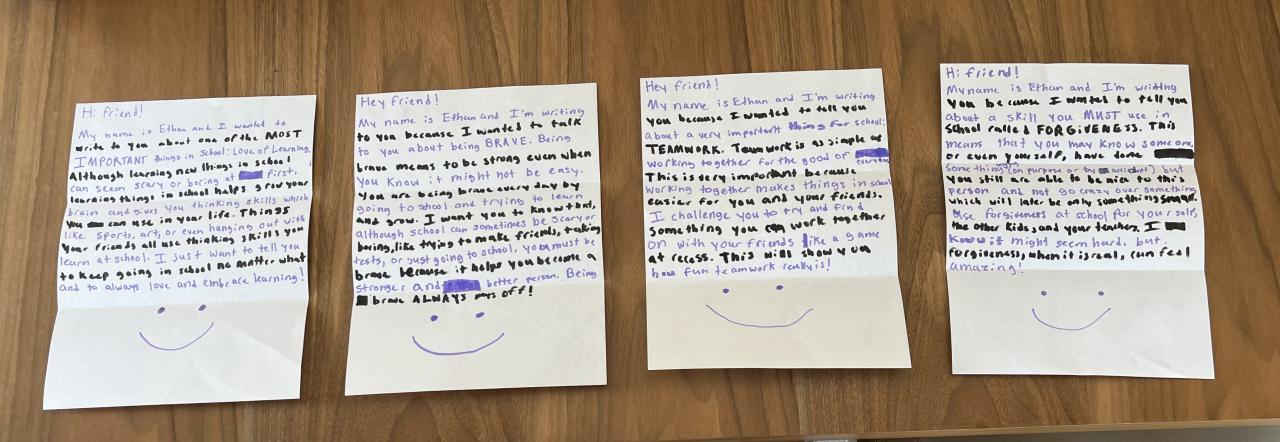 Hi friend!
My name is Ethan and I wanted to
write to you about one of the MOST
IMPORTANT things in school: Love of Learning.
Although learning new things in school
can seem scary or boring at first,
learning things in school helps grow your
brain and gives you thinking skills which
you can use in your life. Things
like sports, art, or even hanging out with
your friends all use thinking skills you
learn at school. I just want to tell you
to keep going in school no matter what
and to always love and embrace learning!
Hey friend!
My name is Ethan and I'm writing
to you because I wanted to talk
to you about being BRAVE. Being
brave means to be strong even when
you know it might not be easy.
You are being brave every day by
going to school and trying to learn
and grow. I want you to know that,
although school can sometimes be scary or
boring, like trying to make friends, taking
tests, or just going to school, you must be
brave because it helps you become a
stronger and better person. Being
brave ALWAYS pays off!
Hey friend!
My name is Ethan and I'm writing
you because I wanted to tell you
about a very important thing for school:
TEAMWORK. Teamwork is as simple as
working together for the good of
everyone.
This is very important because
working together makes things in school
easier for you and your friends.
I challenge you to try and find
something you can work together
on with your friends like a game
at recess. This will show you
how fun teamwork really is!
Hi friend!
My name is Ethan and I'm writing
you because I wanted to tell you
about a skill you MUST use in
school called FORGIVENESS. This
means that you may know someone,
or even yourself, have done
something wrong (on purpose or by accident) but
you still are able to be nice to this
person and not go crazy over something
which will later be only something small.
Use forgiveness at school for yourself,
the other kids, and your teacher. I
know it might seem hard, but
forgiveness, when it is real, can feel
amazing!